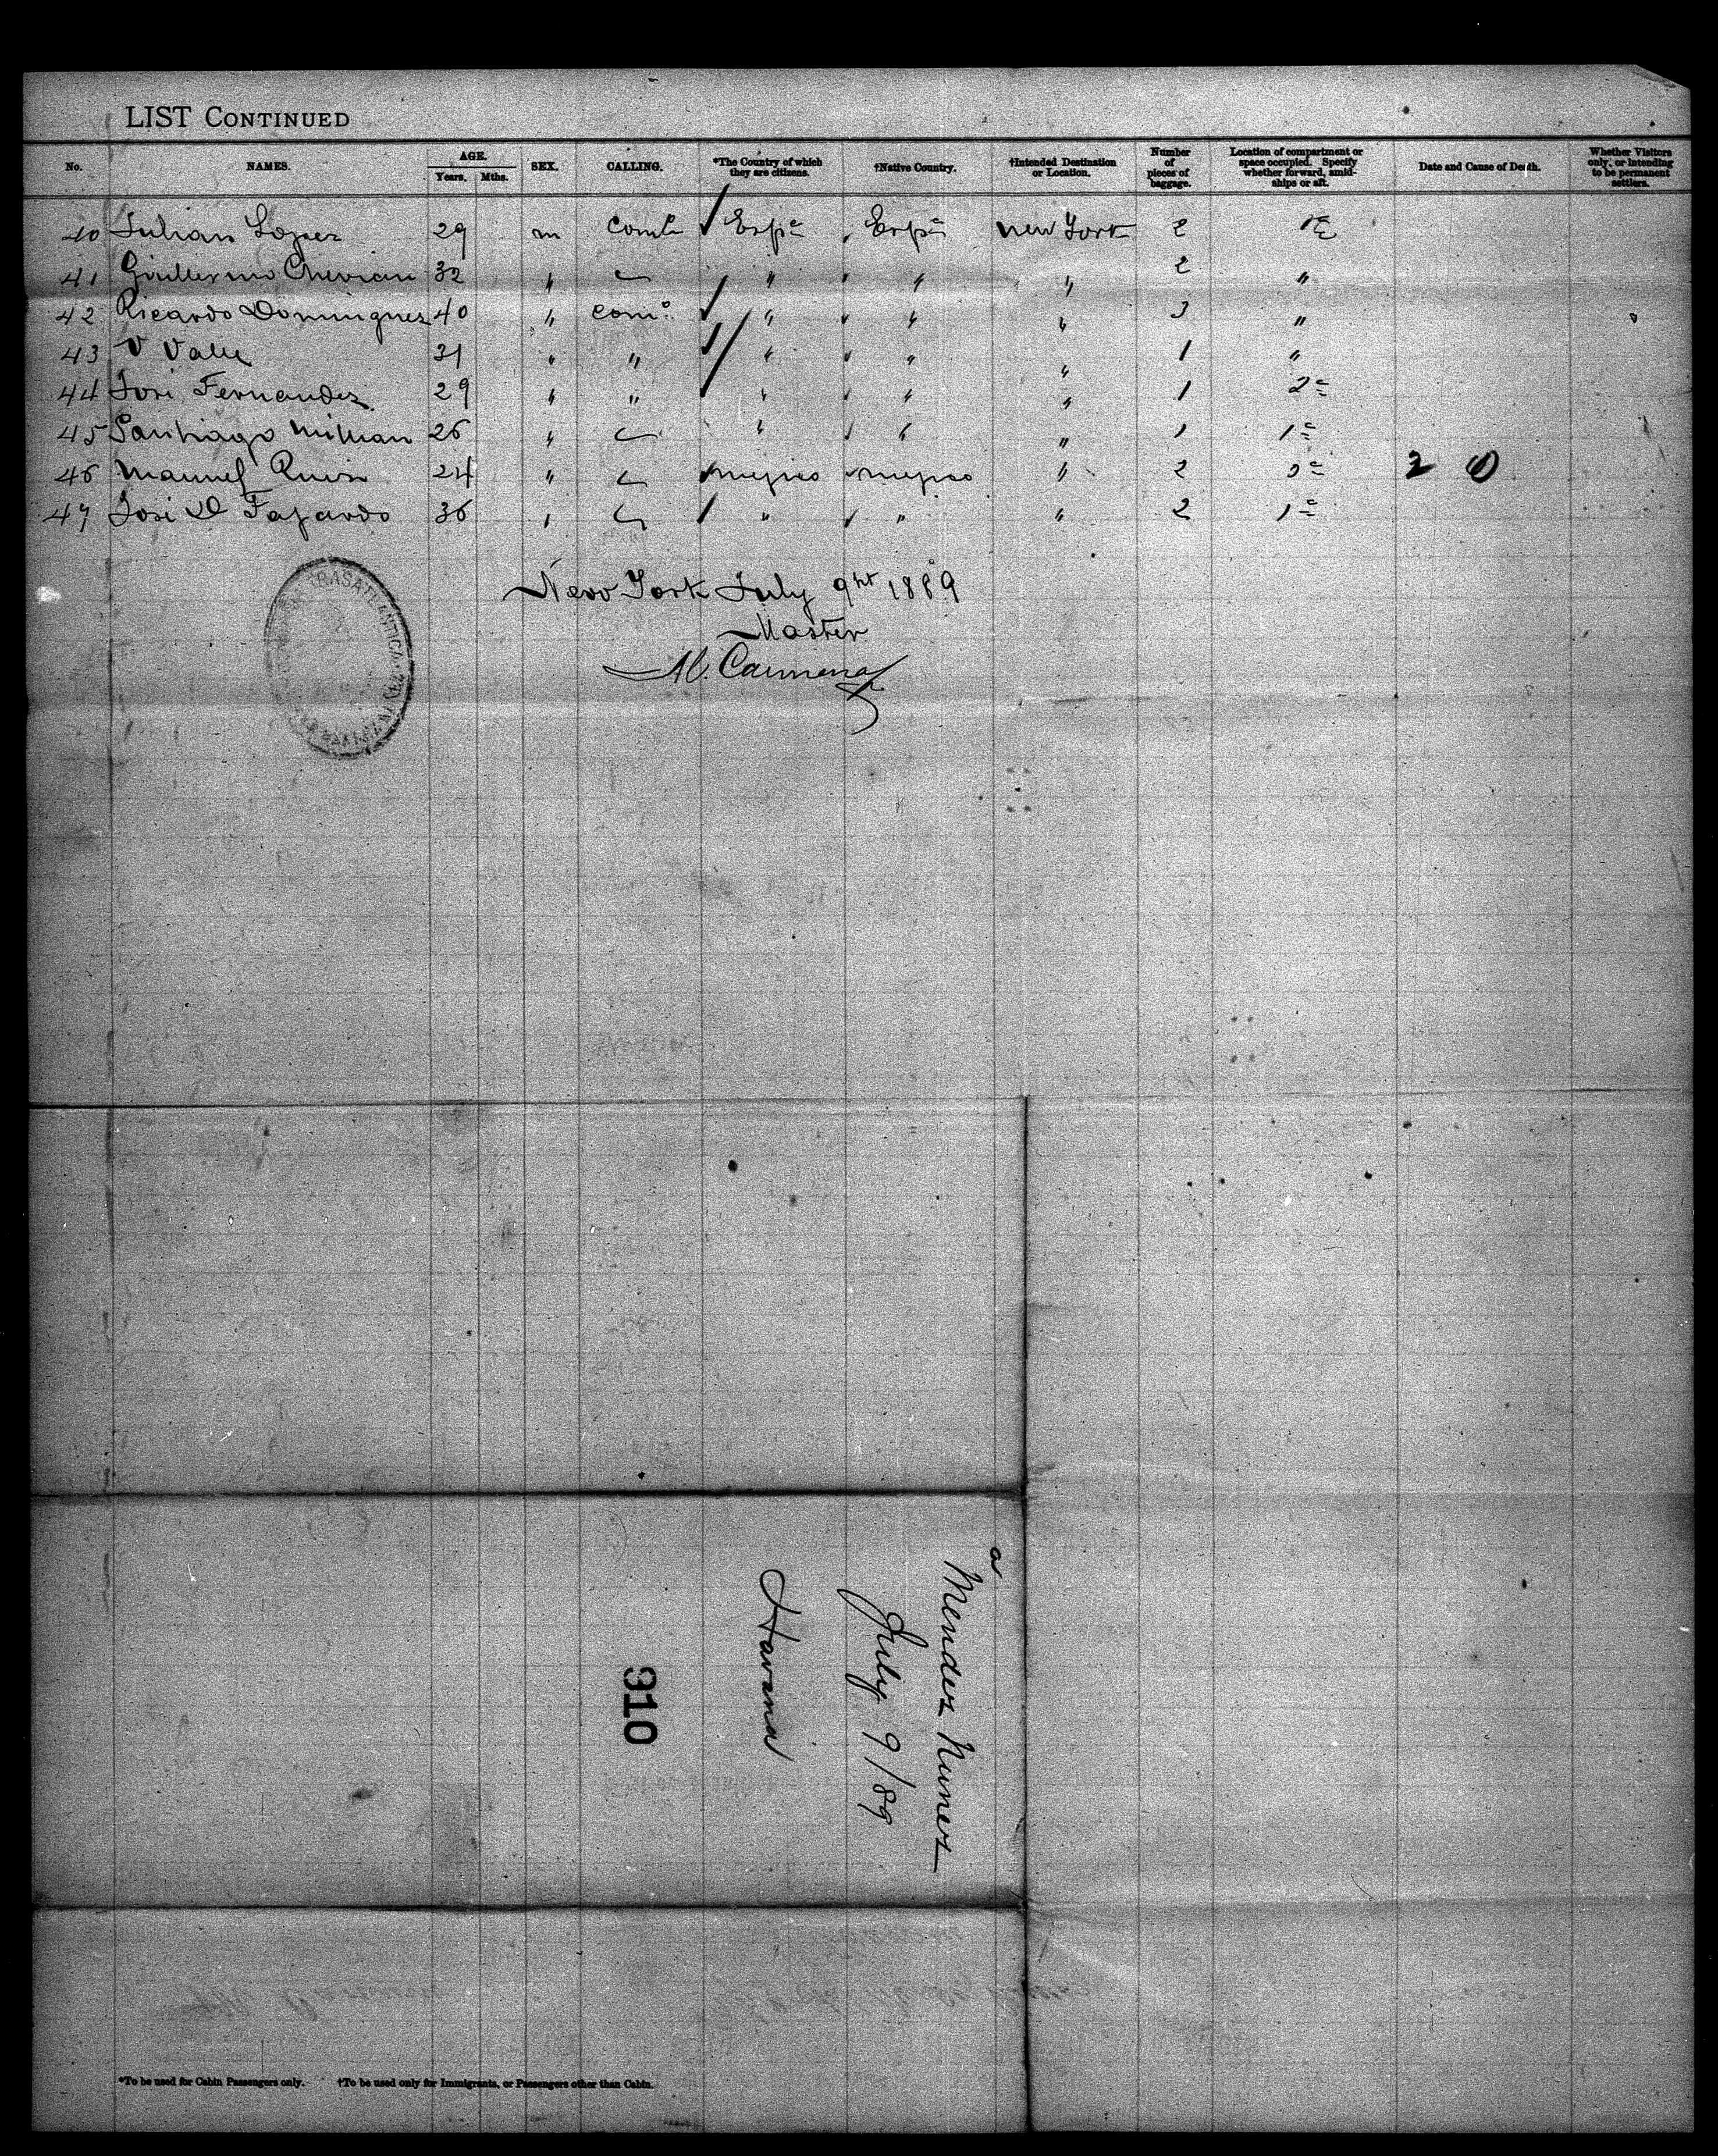 LIST CONTINUED
No. NAMES. AGE. Years. Mths. SEX. CALLING. *The Country of which they are citizens. †Native Country. †Intended Destination or Location. Number of pieces of baggage. Location of compartment or space occupied. Specify whether forward, amidships or aft. Date and Cause of Death. Whether Visitors only, or intending to be permanent settlers.
40 Julian Lopez 29 m Espª Espª New York 2 1ª
41 Guillermo 32 " " " " 2 "
42 Ricardo Dominguez 40 " Comº " " " 3 "
43 V Valle 31 " " " " " 1 "
44 José Fernandez 29 " " " " " 1 2ª
45 Santiago Millian 26 " " " " 1 1ª
46 Manuel 24 " " 2 2ª 2 0
47 José D Fajardo 36 " " " " 2 1ª
TRASATLANTICA
New York July 9ht 1889
Master
M. Carmona
a
Mendez Nunez
July 9/89
Havana
910
*To be used for Cabin Passengers only. †To be used only for Immigrants, or Passengers other than Cabin.